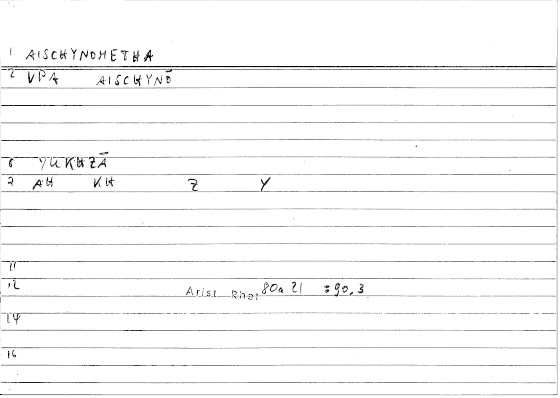 1 AISCHYNOMETHA
2 VPA AISCHYNŌ
6 YUKHZĀ
7 AH KH Z Y
11
12 Arist Rhet 80a 21 = 90,3
14
16